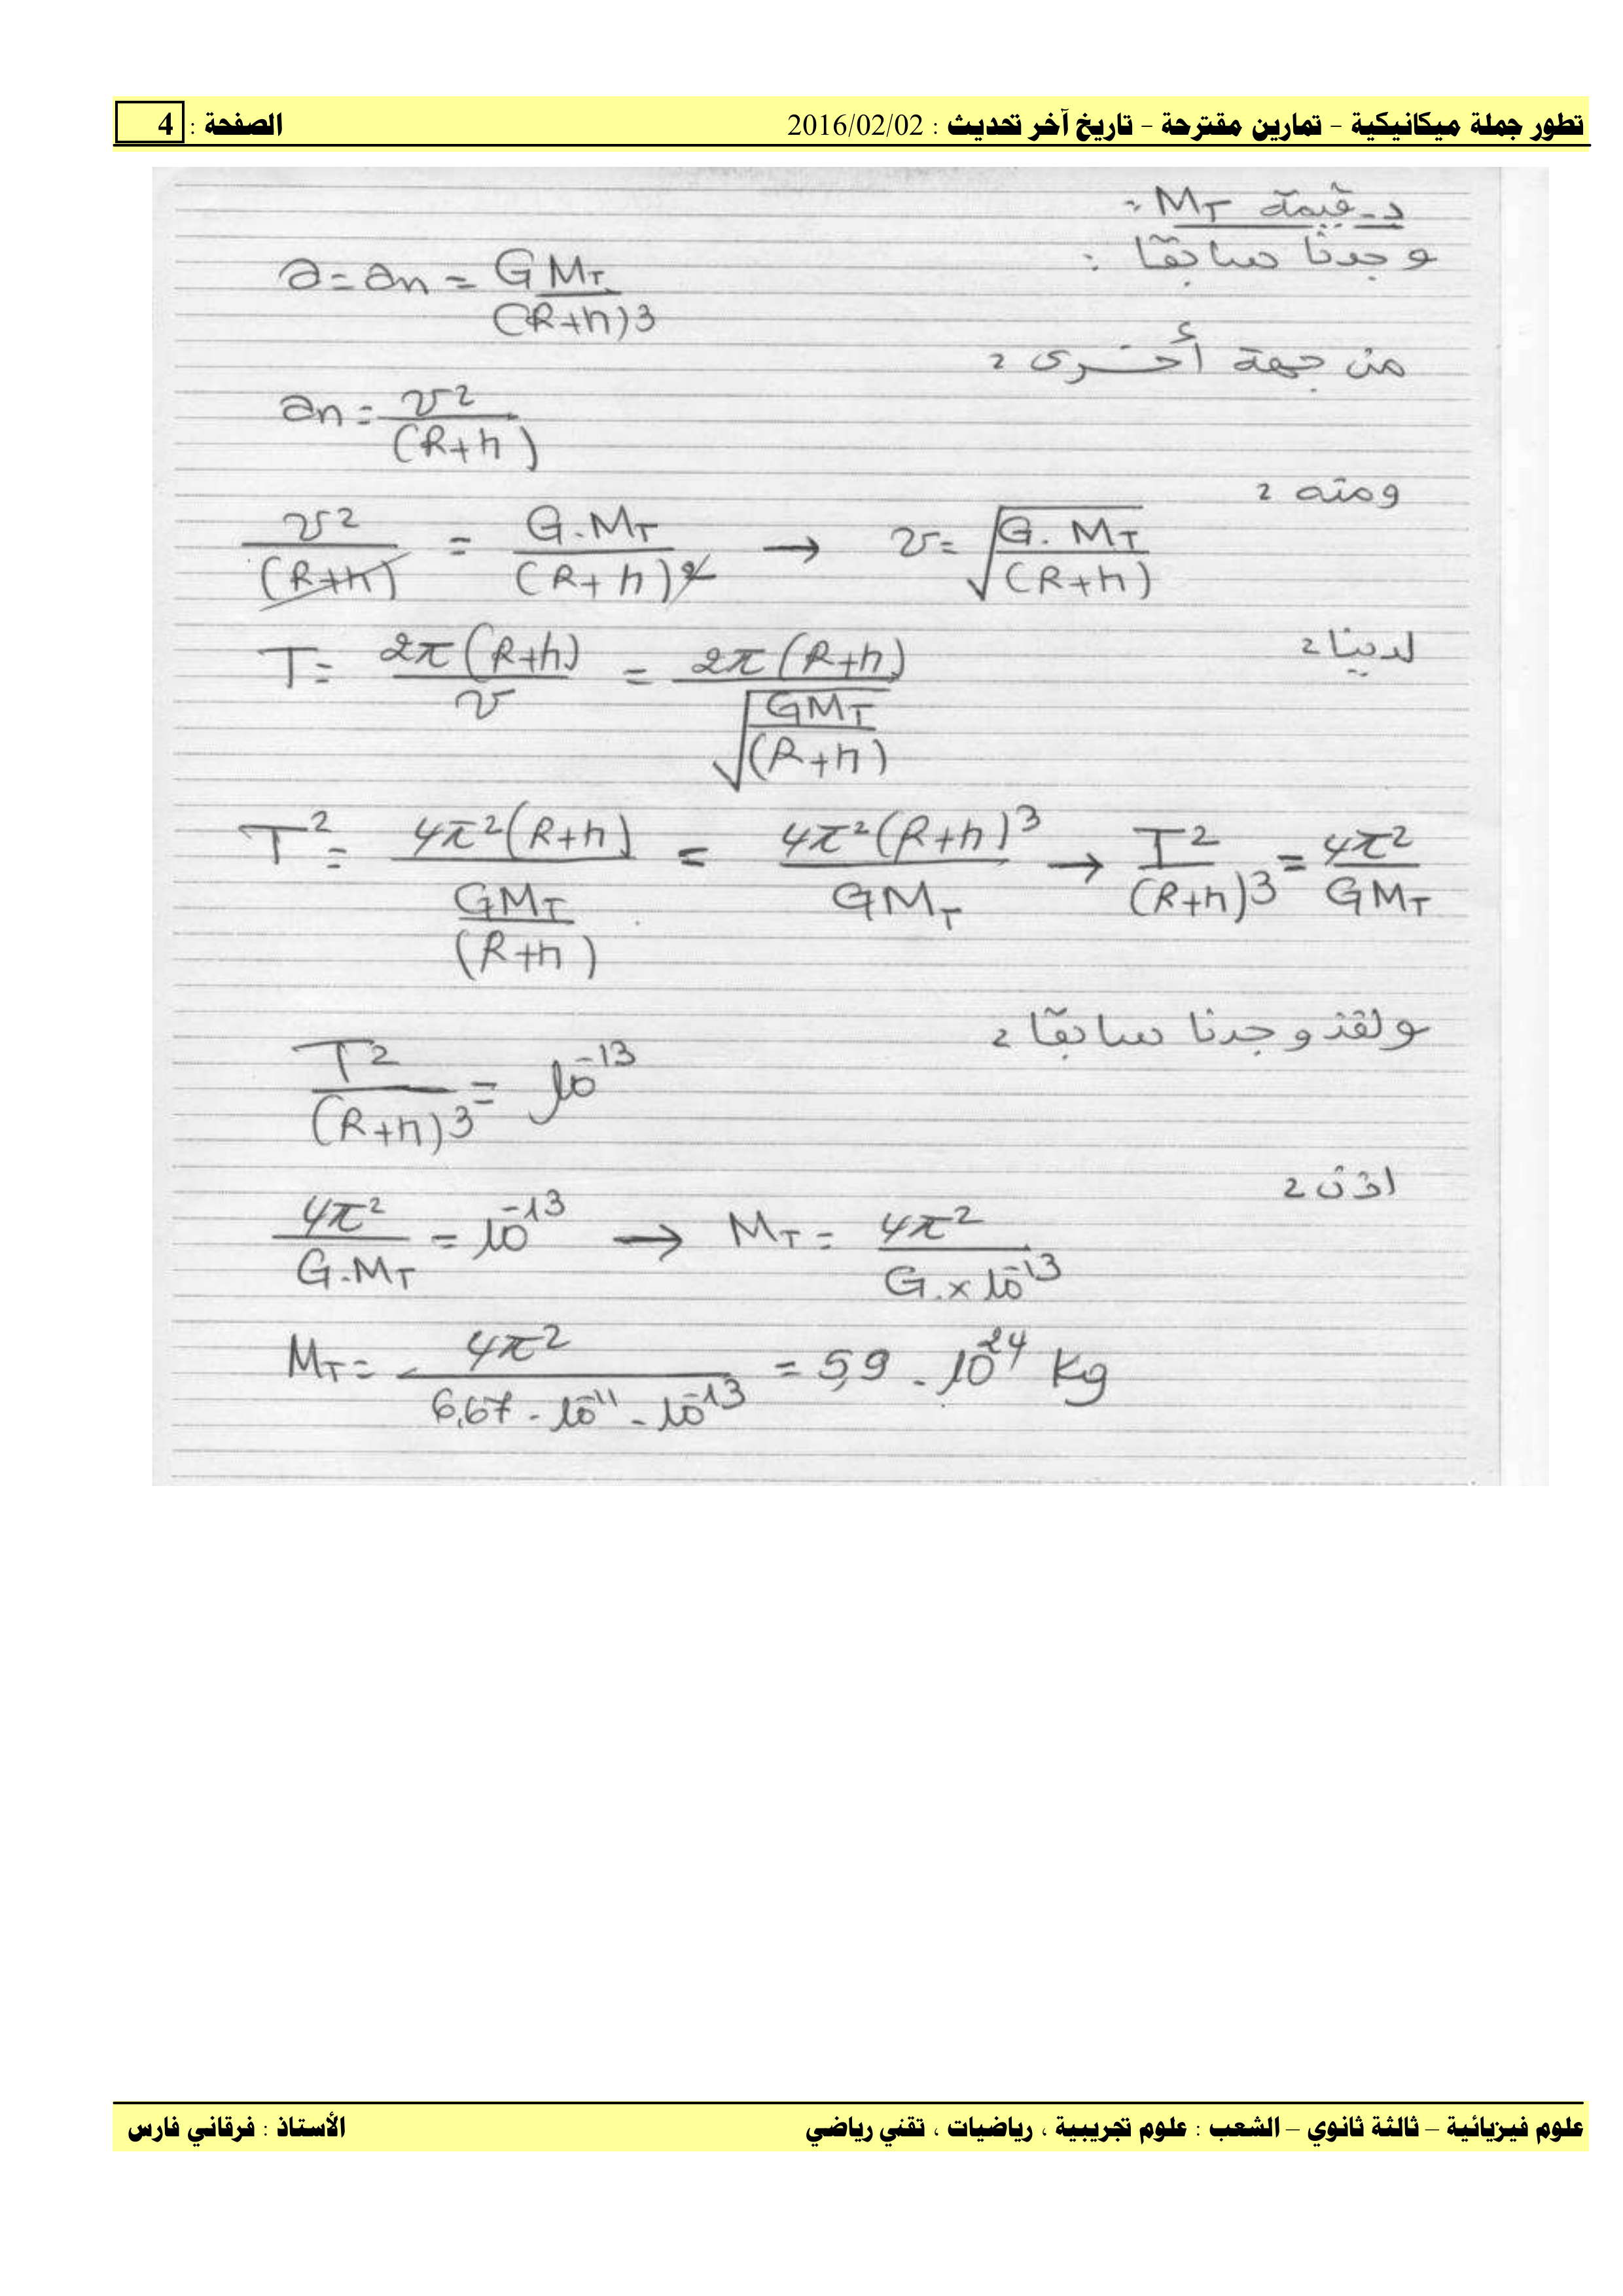 تطور جملة ميكانيكية - تمارين مقترحة - تاريخ آخر تحديث : 2016/02/02 الصفحة : 4
د- قيمة MT :
وجدنا سابقا :
a = an = G MT / (R+h)3
من جهة أخرى :
an = v² / (R+h)
ومنه :
v² / (R+h) = G.MT / (R+h)² → v = √(G.MT / (R+h))
لدينا :
T = 2π(R+h) / v = 2π(R+h) / √(GMT / (R+h))
T² = 4π²(R+h) / (GMT / (R+h)) = 4π²(R+h)³ / GMT → T² / (R+h)³ = 4π² / GMT
ولقد وجدنا سابقا :
T² / (R+h)³ = 10⁻¹³
اذن :
4π² / G.MT = 10⁻¹³ → MT = 4π² / G.×10⁻¹³
MT = 4π² / 6,67.10⁻¹¹.10⁻¹³ = 5,9.10²⁴ Kg
علوم فيزيائية – ثالثة ثانوي – الشعب : علوم تجريبية ، رياضيات ، تقني رياضي الأستاذ : فرقاني فارس